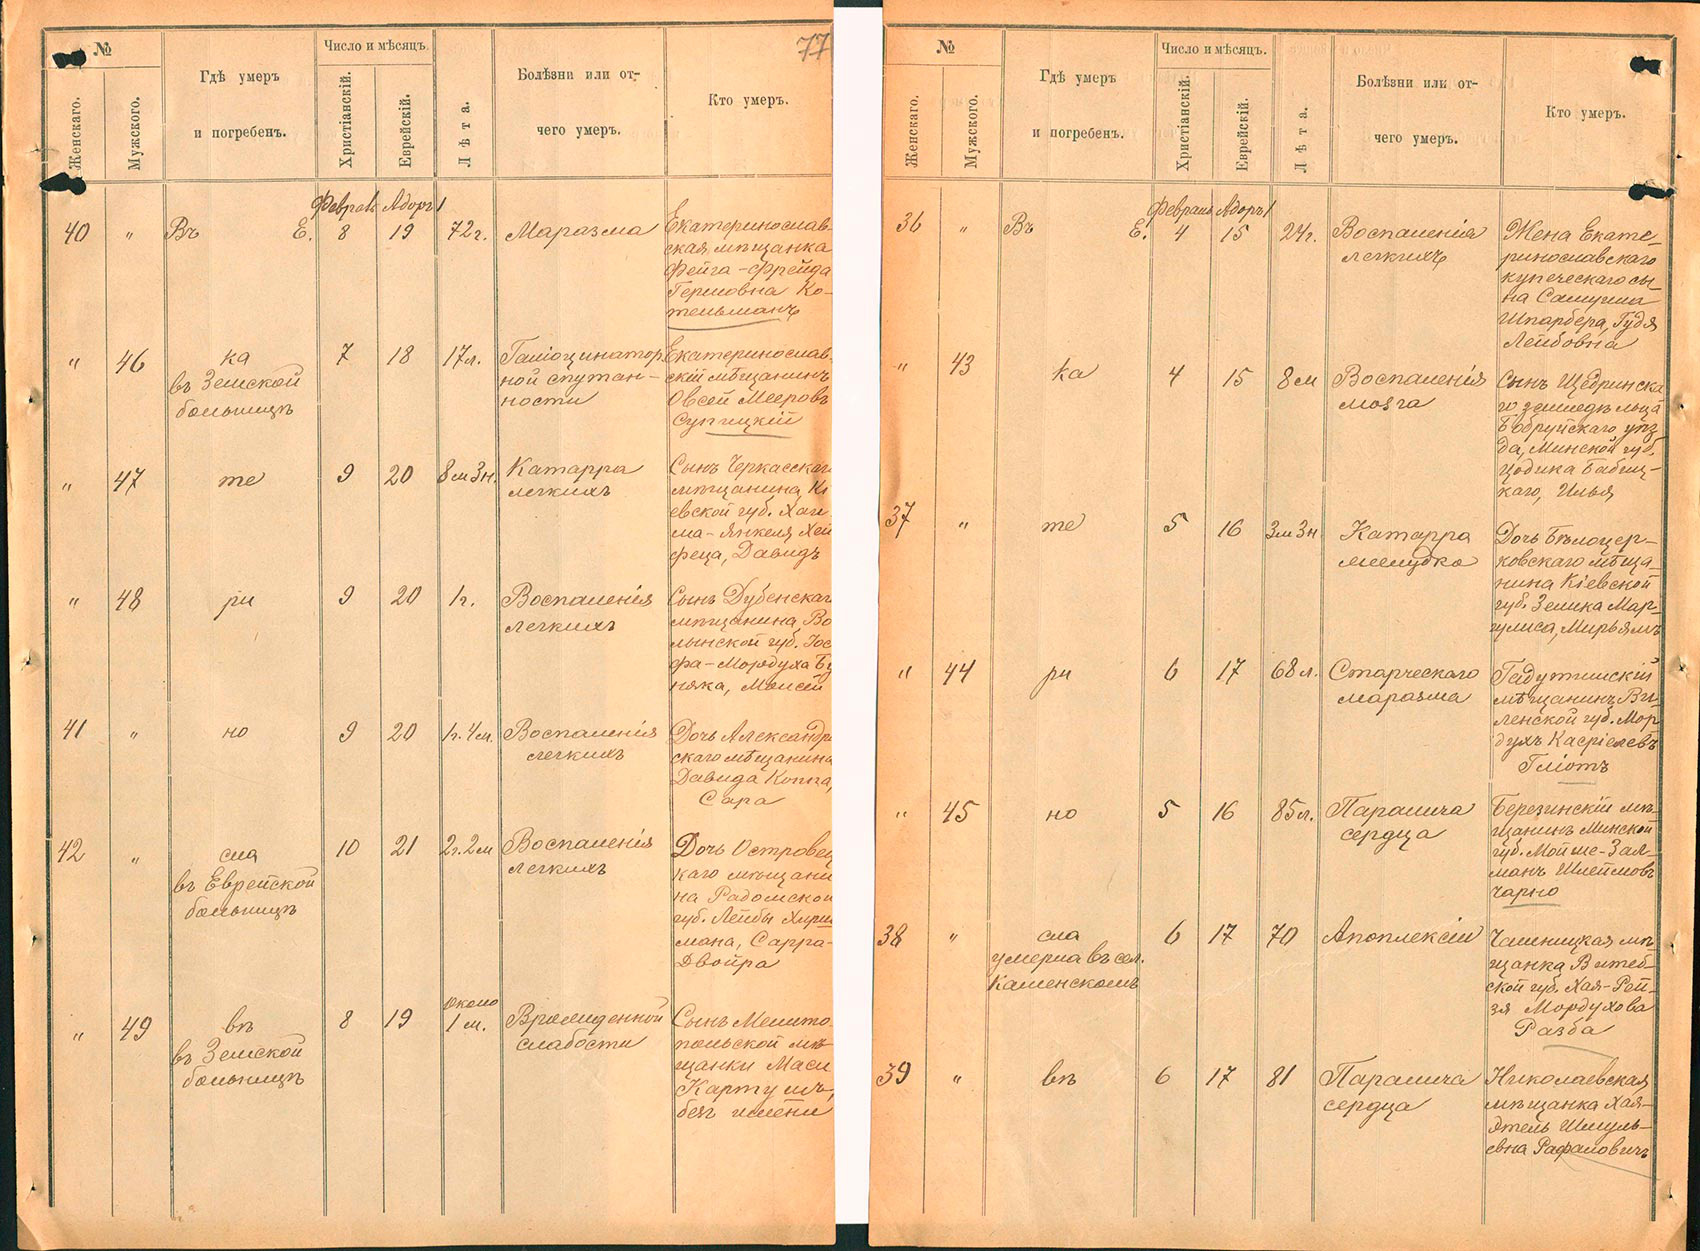 77
№
Женскаго.
Мужского.
Гдѣ умеръ
и погребенъ.
Число и мѣсяцъ.
Христіанскій.
Еврейскій.
Лѣта.
Болѣзни или от-
чего умеръ.
Кто умеръ.
Феврал Адоръ 1
40 " Въ Е. 8 19 72 г. Маразма
Екатеринослав-
ская мѣщанка
Фейга-Фрейда
Герцовна Ко-
тельманъ
" 46 ка
въ Земской
больницѣ
7 18 17 л. Галлюцинатор
ной спутан-
ности
Екатеринослав-
скій мѣщанинъ
Овсей Мееровъ
Супицкій
" 47 те 9 20 8 м 3 н. Катарра
легкихъ
Сынъ Черкасскаг
мѣщанина Кі
евской губ. Хаи
ма-Янкеля Хей
феца, Давидъ
" 48 ри 9 20 1 г. Воспаленія
легкихъ
Сынъ Дубенскаг
мѣщанина Во
лынской губ. Іос
фа-Мордуха Бу
няка, Моисей
41 " но 9 20 1 г. 4 м. Воспаленія
легкихъ
Дочь Александрі
скаго мѣщанина
Давида Коппа,
Сара
42 " сла
въ Еврейской
больницѣ
10 21 2 г. 2 м Воспаленія
легкихъ
Дочь Островец
каго мѣщани
на Радомской
губ. Лейбы
мана, Сарра-
Двойра
" 49 въ
въ Земской
больницѣ
8 19 около
1 м. Врожденной
слабости
Сынъ Мелито
польской мѣ
щанки Маси
Картушъ,
безъ имени
№
Женскаго.
Мужского.
Гдѣ умеръ
и погребенъ.
Число и мѣсяцъ.
Христіанскій.
Еврейскій.
Лѣта.
Болѣзни или от-
чего умеръ.
Кто умеръ.
Февраль Адоръ 1
36 " Въ Е. 4 15 24 г. Воспаленія
легкихъ
Жена Екате-
ринославскаго
купеческаго сы-
на Самуила
Шпарбера, Гудя
Лейбовна
" 43 ка 4 15 8 м Воспаленія
мозга
Сынъ Щедринска
го земледѣльца
Бобруйскаго уѣз
да, Минской губ.
Цодика Бабиц-
каго, Илья
37 " те 5 16 3 м 3 н Катарра
желудка
Дочь Бѣлоцер-
ковскаго мѣща-
нина Кіевской
губ. Зелика Мар-
гулиса, Мирьямъ
" 44 ри 6 17 68 л. Старческаго
маразма
Гадутишскій
мѣщанинъ Ви-
ленской губ. Мор
духъ Касріелевъ
Гліотъ
" 45 но 5 16 85 л. Паралича
сердца
Березинскій мѣ-
щанинъ Минской
губ. Мойше-Зал-
манъ Шлеймовъ
Чарно
38 " сла
умерла въ сел.
Каменскомъ
6 17 70 Апоплексіи
Чашницкая мѣ-
щанка Витеб-
ской губ. Хая-Рей-
зя Мордухова
Разба
39 " въ 6 17 81 Паралича
сердца
Николаевская
мѣщанка Хая-
Этель Шмуль-
евна Рафаловичъ